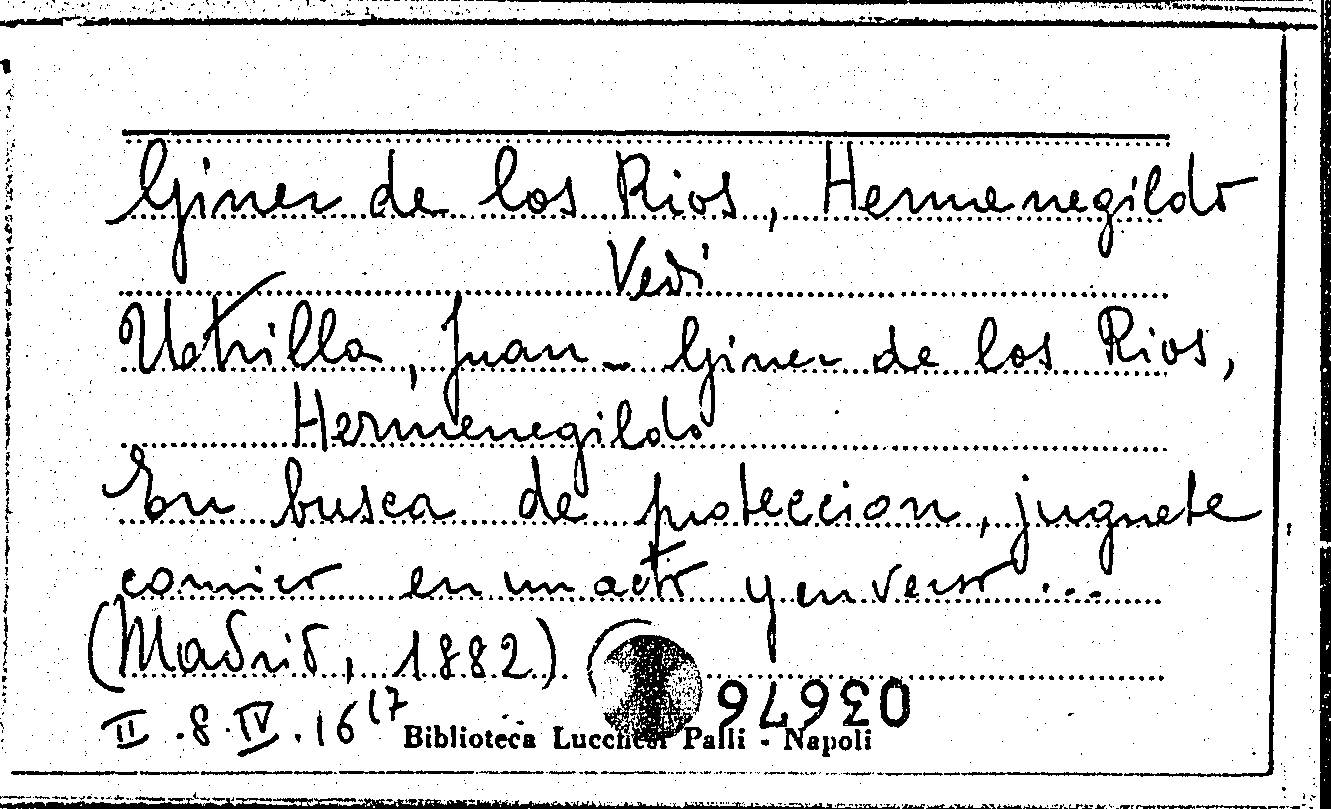 Giner de los Rios, Hermenegildo
Vedi
Utrilla, Juan - Giner de los Rios,
Hermenegildo
En busca de proteccion, juguete
comico en un acto y en verso ...
(Madrid, 1882)
03676
II . 8 . IV . 16 (7
Biblioteca Lucchesi Palli - Napoli